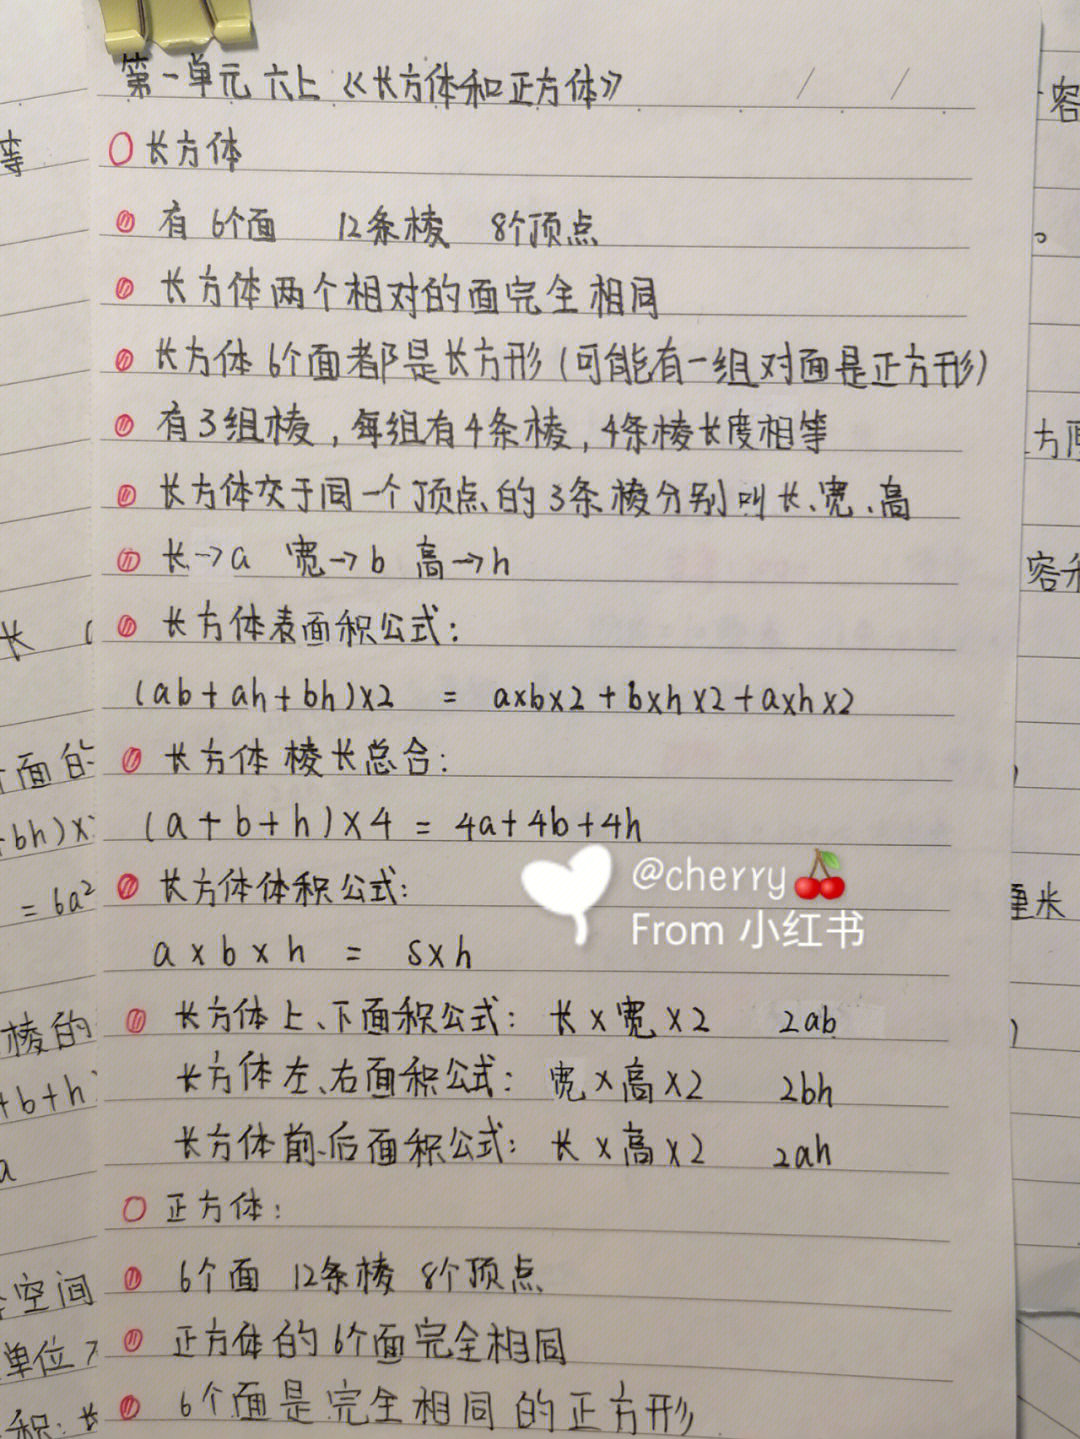 第一单元 六上《长方体和正方体》
长方体
有 6个面 12条棱 8个顶点
长方体两个相对的面完全相同
长方体6个面都是长方形(可能有一组对面是正方形)
有3组棱,每组有4条棱,4条棱长度相等
长方体交于同一个顶点的3条棱分别叫长、宽、高
长→a 宽→b 高→h
长方体表面积公式:
(ab+ah+bh)×2 = a×b×2+b×h×2+a×h×2
长方体棱长总合:
(a+b+h)×4 = 4a+4b+4h
长方体体积公式:
a×b×h = s×h
@cherry🍒
From 小红书
长方体上、下面积公式: 长×宽×2 2ab
长方体左、右面积公式: 宽×高×2 2bh
长方体前、后面积公式: 长×高×2 2ah
正方体:
6个面 12条棱 8个顶点
正方体的6个面完全相同
6个面是完全相同的正方形
等
长 (
面的
bh)×
=6a²
棱的
+b+h
a
空间
单位
积:长
容
。
方
容
厘米
)